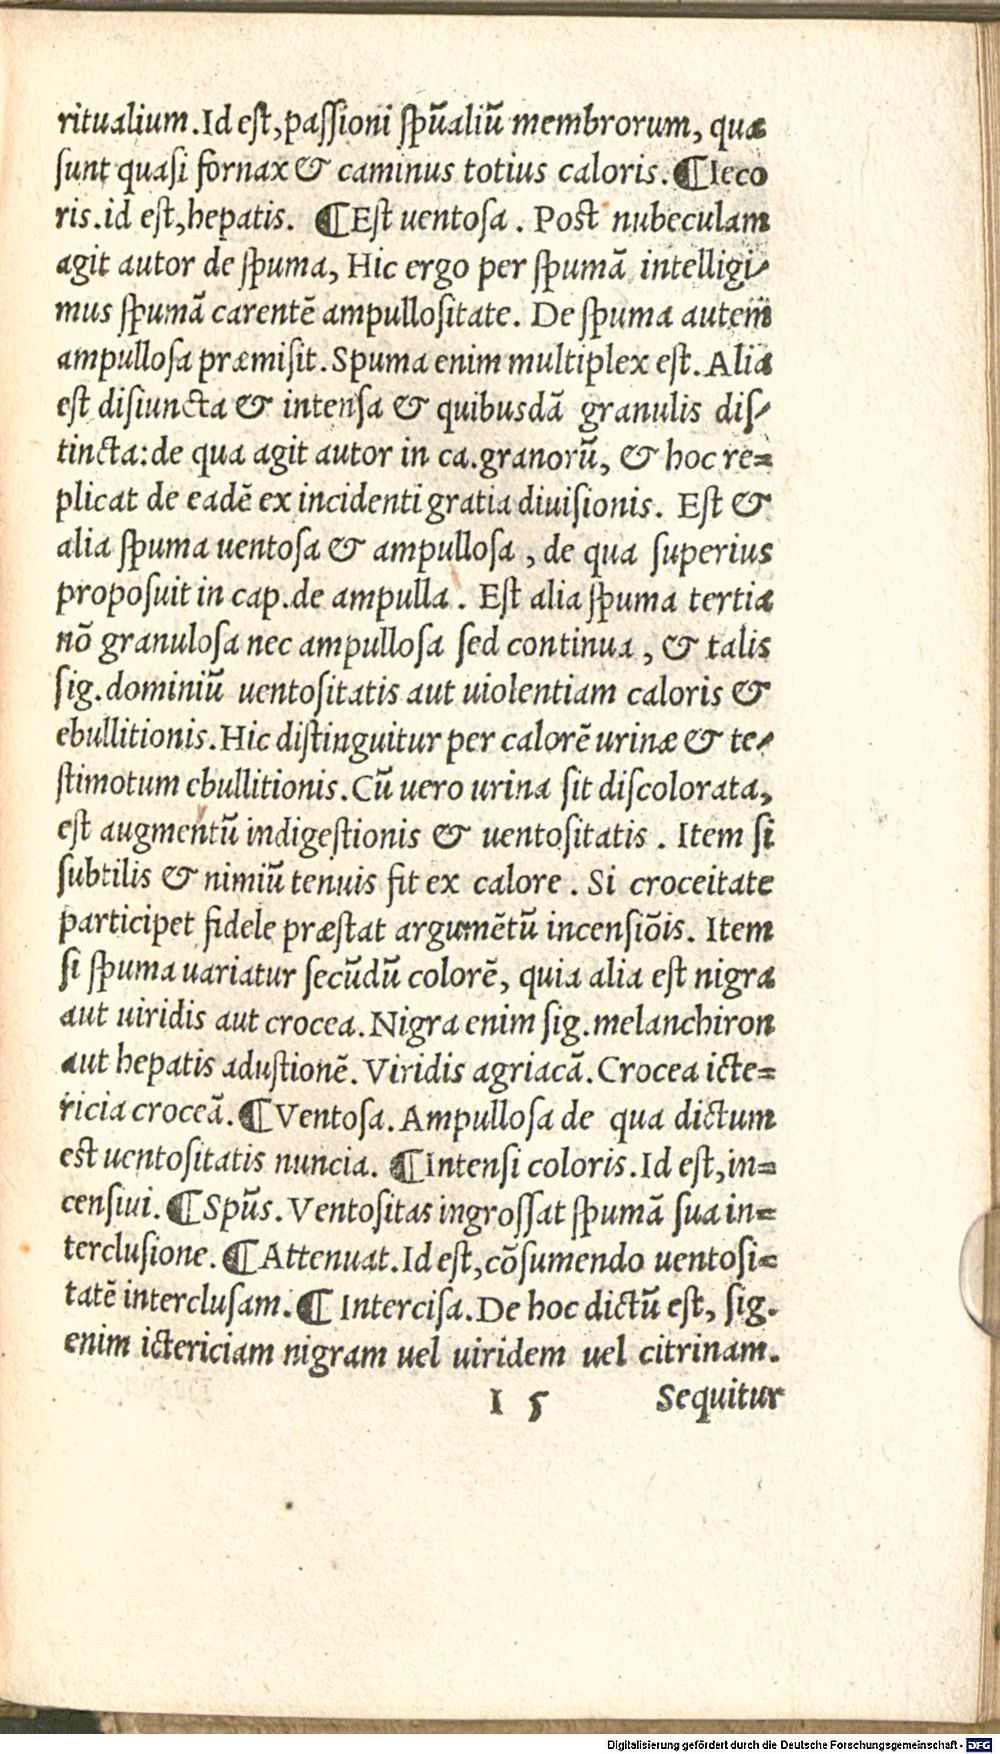 ritualium. Id eſt, paſſioni ſpũaliũ membrorum, quæ
ſunt quaſi fornax & caminus totius caloris. ¶ Ieco
ris. id eſt, hepatis. ¶ Eſt uentoſa. Poſt nubeculam
agit autor de ſpuma, Hic ergo per ſpumã intelligi-
mus ſpumã carentẽ ampulloſitate. De ſpuma autem
ampulloſa præmiſit. Spuma enim multiplex eſt. Alia
eſt diſiuncta & intenſa & quibuſdã granulis diſ-
tincta: de qua agit autor in ca. granorũ, & hoc re=
plicat de eadẽ ex incidenti gratia diuiſionis. Eſt &
alia ſpuma uentoſa & ampulloſa, de qua ſuperius
propoſuit in cap. de ampulla. Eſt alia ſpuma tertia
nõ granuloſa nec ampulloſa ſed continua, & talis
ſig. dominiũ uentoſitatis aut uiolentiam caloris &
ebullitionis. Hic diſtinguitur per calorẽ urinæ & te-
ſtimotum ebullitionis. Cũ uero urina ſit diſcolorata,
eſt augmentũ indigeſtionis & uentoſitatis. Item ſi
ſubtilis & nimiũ tenuis fit ex calore. Si croceitate
participet fidele præſtat argumẽtũ incenſiõis. Item
ſi ſpuma uariatur ſecũdũ colorẽ, quia alia eſt nigra
aut uiridis aut crocea. Nigra enim ſig. melanchiron
aut hepatis aduſtionẽ. Viridis agriacã. Crocea icte=
ricia croceã. ¶ Ventoſa. Ampulloſa de qua dictum
eſt uentoſitatis nuncia. ¶ Intenſi coloris. Id eſt, in=
cenſiui. ¶ Spũs. Ventoſitas ingroſſat ſpumã ſua in=
terclusione. ¶ Attenuat. Id eſt, cõſumendo uentoſi=
tatẽ interclusam. ¶ Interciſa. De hoc dictũ eſt, ſig.
enim ictericiam nigram uel uiridem uel citrinam.
I 5 Sequitur
Digitalisierung gefördert durch die Deutsche Forschungsgemeinschaft - DFG